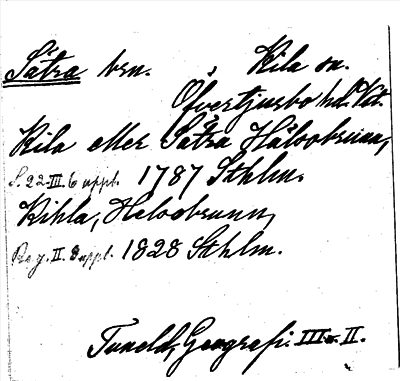 Sätra brn. , Kila sn.
Öfvertjurbo hd. Vstm.
Kila eller Sätra Hälsobrunn,
S. 22. III. 6 uppl. 1787 Sthlm.
Kihla, Helsobrunn,
II. 8 uppl. 1828 Sthlm.
Tuneld, Geografi. III o. II.